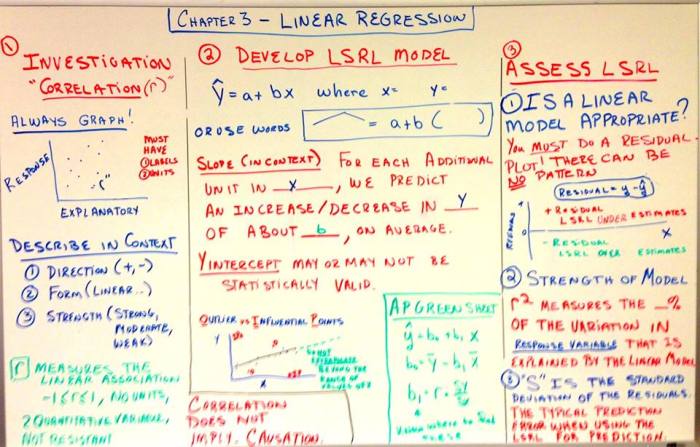 CHAPTER 3 - LINEAR REGRESSION
① INVESTIGATION
"CORRELATION (r)"
ALWAYS GRAPH!
RESPONSE
MUST
HAVE
① LABELS
② UNITS
"r"
EXPLANATORY
DESCRIBE IN CONTEXT
① DIRECTION (+,-)
② FORM (LINEAR...)
③ STRENGTH (STRONG,
MODERATE,
WEAK)
r MEASURES THE
LINEAR ASSOCIATION
-1≤r≤1, NO UNITS,
2 QUANTITATIVE VARIABLE,
NOT RESISTANT
② DEVELOP LSRL MODEL
ŷ = a + bx where x= y=
OR USE WORDS = a+b ( )
SLOPE (IN CONTEXT) FOR EACH ADDITIONAL
UNIT IN X, WE PREDICT
AN INCREASE/DECREASE IN Y
OF ABOUT b, ON AVERAGE.
Y INTERCEPT MAY OR MAY NOT BE
STATISTICALLY VALID.
OUTLIER VS INFLUENTIAL POINTS
Y
X
DO NOT
EXTRAPOLATE
BEYOND THE
RANGE OF
VALUES OF X
CORRELATION
DOES NOT
IMPLY CAUSATION.
AP GREEN SHEET
ŷ = b₀ + b₁ x
b₀ = ȳ - b₁ x̄
b₁ = r · Sy
Sx
Know where to find
③
ASSESS LSRL
① IS A LINEAR
MODEL APPROPRIATE?
You MUST DO A RESIDUAL
PLOT! THERE CAN BE
NO PATTERN
RESIDUAL = y - ŷ
RESIDUAL
+
0
-
+ RESIDUAL
LSRL UNDER ESTIMATES
X
- RESIDUAL
LSRL OVER ESTIMATES
② STRENGTH OF MODEL
r² MEASURES THE _%
OF THE VARIATION IN
RESPONSE VARIABLE THAT IS
EXPLAINED BY THE LINEAR MODEL
③ "S" IS THE STANDARD
DEVIATION OF THE RESIDUALS.
THE TYPICAL PREDICTION
ERROR WHEN USING THE
LSRL FOR PREDICTION.